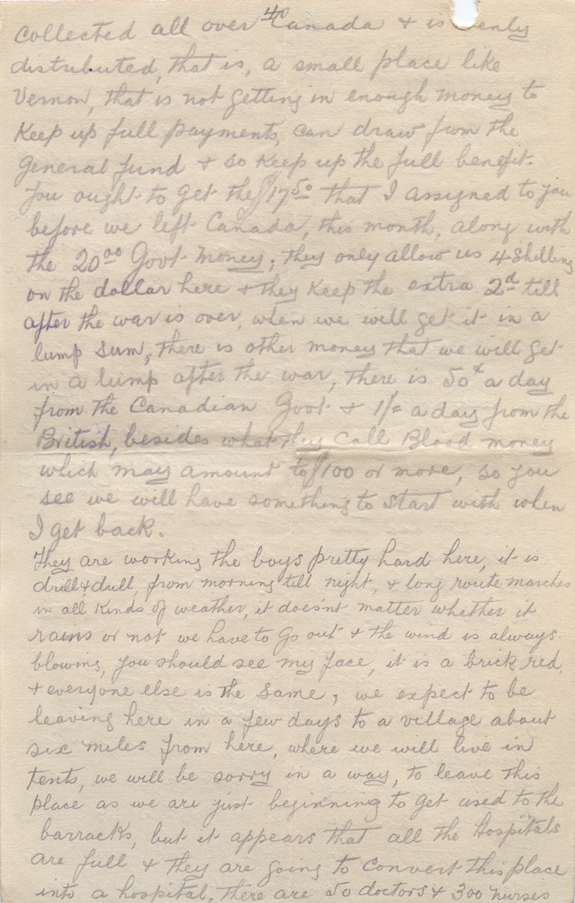 4
collected all over Canada & is evenly
distributed, that is, a small place like
Vernon, that is not getting in enough money to
Keep up full payments, can draw from the
general fund & so Keep up the full benefit.
You ought to get the $17.50 that I assigned to you
before we left Canada, this month, along with
the 20.00 Govt money; they only allow us 4 Shilling
on the dollar here & they Keep the extra 2d till
after the war is over, when we will get it in a
lump sum, there is other money that we will get
in a lump after the war, there is 50¢ a day
from the Canadian Govt & 1/= a day from the
British, besides what they call Blood money
which may amount to $100 or more, so you
see we will have something to start with when
I get back.
They are working the boys pretty hard here, it is
drill & drill, from morning till night, & long route marches
in all Kinds of weather, it doesnt matter whether it
rains or not we have to go out & the wind is always
blowing, you should see my face, it is a brick red,
& everyone else is the same; we expect to be
leaving here in a few days to a village about
six miles from here, where we will live in
tents, we will be sorry in a way, to leave this
place as we are just beginning to get used to the
barracks, but it appears that all the Hospitals
are full & they are going to convert this place
into a hospital. There are 50 doctors & 300 nurses